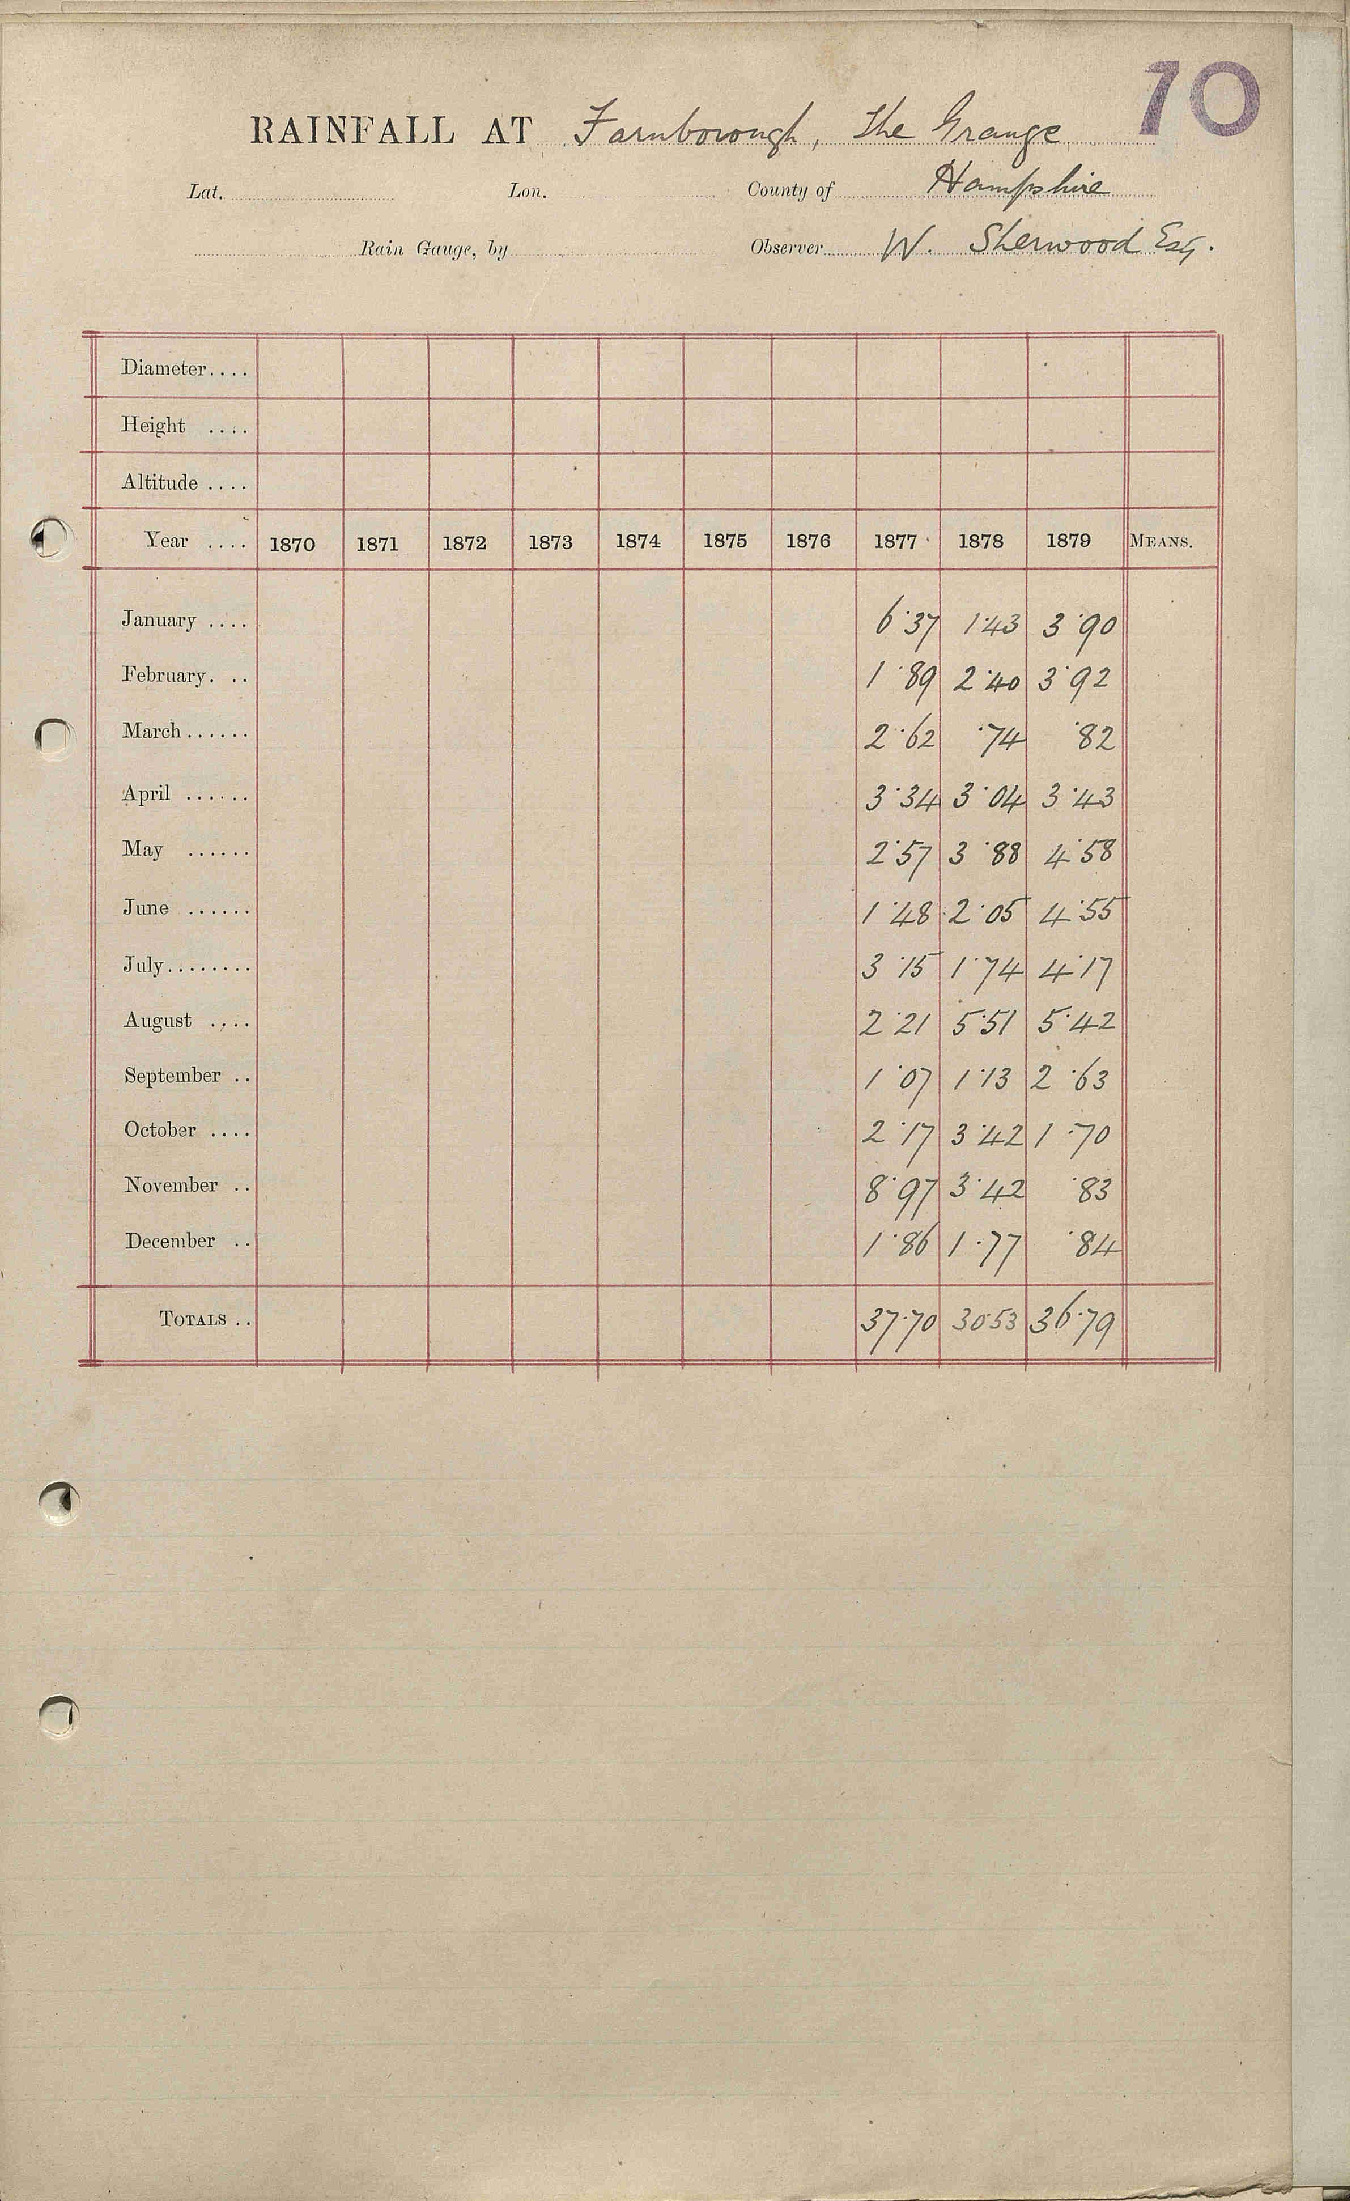 70
RAINFALL AT Farnborough, The Grange
Lat. Lon. County of Hampshire
Rain Gauge, by Observer W. Sherwood Esq.
Diameter....
Height ....
Altitude ....
Year .... 1870 1871 1872 1873 1874 1875 1876 1877 1878 1879 MEANS.
January .... 6.37 1.43 3.90
February. .. 1.89 2.40 3.92
March...... 2.62 .74 .82
April ...... 3.34 3.04 3.43
May ...... 2.57 3.88 4.58
June ...... 1.48 2.05 4.55
July........ 3.15 1.74 4.17
August .... 2.21 5.51 5.42
September .. 1.07 1.13 2.63
October .... 2.17 3.42 1.70
November .. 8.97 3.42 .83
December .. 1.86 1.77 .84
TOTALS .. 37.70 30.53 36.79